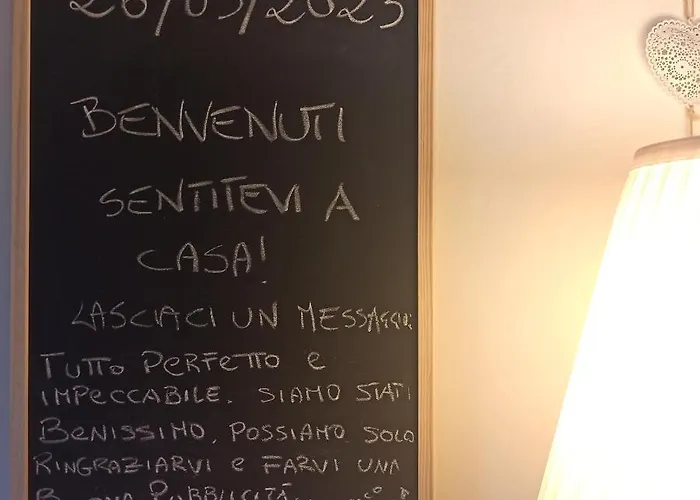 26/05/2023
BENVENUTI
SENTITEVI A
CASA!
LASCIACI UN MESSAGGIO:
TUTTO PERFETTO E
IMPECCABILE. SIAMO STATI
BENISSIMO, POSSIAMO SOLO
RINGRAZIARVI E FARVI UNA
BUONA PUBBLICITÀ